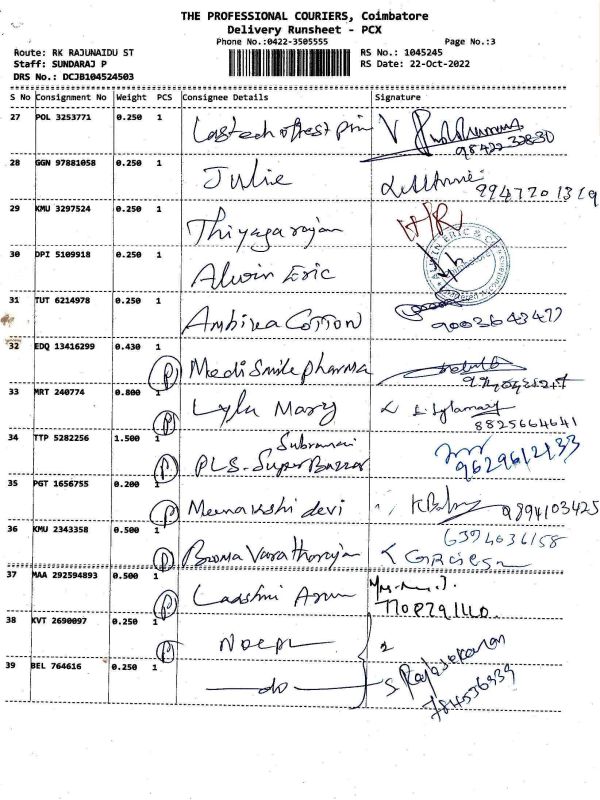 THE PROFESSIONAL COURIERS, Coimbatore
Delivery Runsheet - PCX
Phone No.:0422-3505555 Page No.:3
Route: RK RAJUNAIDU ST RS No.: 1045245
Staff: SUNDARAJ P RS Date: 22-Oct-2022
DRS No.: DCJB104524503
S No Consignment No Weight PCS Consignee Details Signature
27 POL 3253771 0.250 1
28 GGN 97881058 0.250 1 Julie
29 KMU 3297524 0.250 1 Thiyagarajan
30 DPI 5109918 0.250 1 Alwin Eric
ALWIN ERIC & CO
31 TUT 6214978 0.250 1 Ambika Cotton 9003643477
32 EDQ 13416299 0.430 1 P Medi Smile pharma
33 MRT 240774 0.800 1 P Lyla Mary
8825664641
34 TTP 5282256 1.500 1 P PLS-Super Bazzar 9629612133
35 PGT 1656755 0.200 1 P Meenakshi devi 9894103425
36 KMU 2343358 0.500 1 P 6374636158
37 MAA 292594893 0.500 1 P Laxshmi Arun
38 KVT 2690097 0.250 1 P
39 BEL 764616 0.250 1 do S Rajasekaran